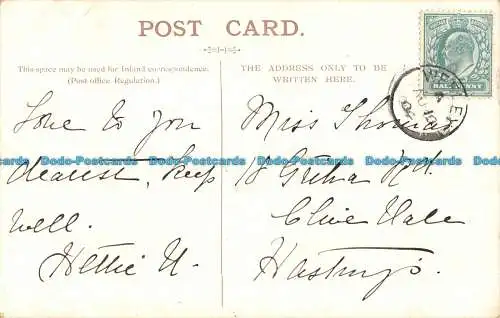 POST CARD.
This space may be used for Inland correspondence.
(Post office Regulation.)
THE ADDRESS ONLY TO BE
WRITTEN HERE.
HALFPENNY
Love to you
dearest, keep
well.
Hettie N.
Miss
18 Rd
Clive Vale
Hastings.
Dodo-Postcards Dodo-Postcards Dodo-Postcards Dodo-Postcards Dodo-Postcards